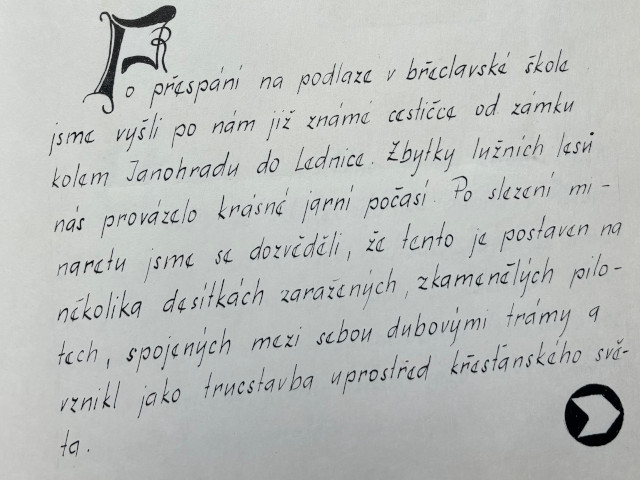 Po přespání na podlaze v břeclavské škole
jsme vyšli po nám již známé cestičce od zámku
kolem Janohradu do Lednice. Zbytky lužních lesů
nás provázelo krásné jarní počasí. Po slezení mi-
naretu jsme se dozvěděli, že tento je postaven na
několika desítkách zaražených, zkamenělých pilo-
tech, spojených mezi sebou dubovými trámy a
vznikl jako trucstavba uprostřed křesťanského svě-
ta.